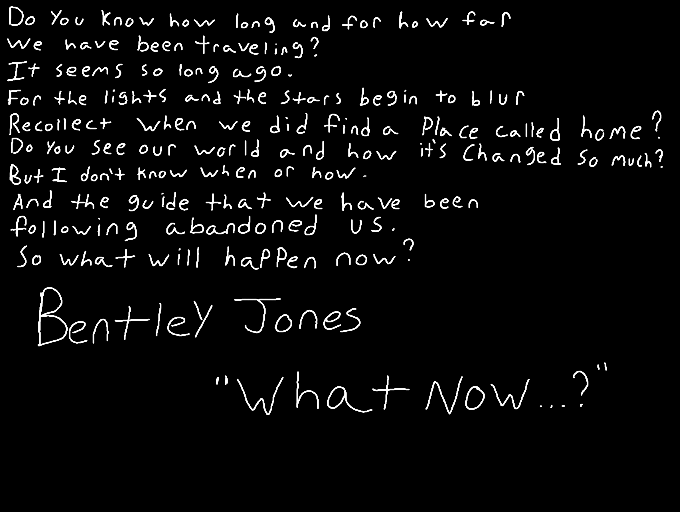 Do You Know how long and for how far
we have been traveling?
It seems so long ago.
For the lights and the stars begin to blur
Recollect when we did find a Place called home?
Do You see our world and how it's Changed so much?
But I don't know when or how.
And the guide that we have been
following abandoned us.
So what will happen now?
Bentley Jones
"What Now...?"